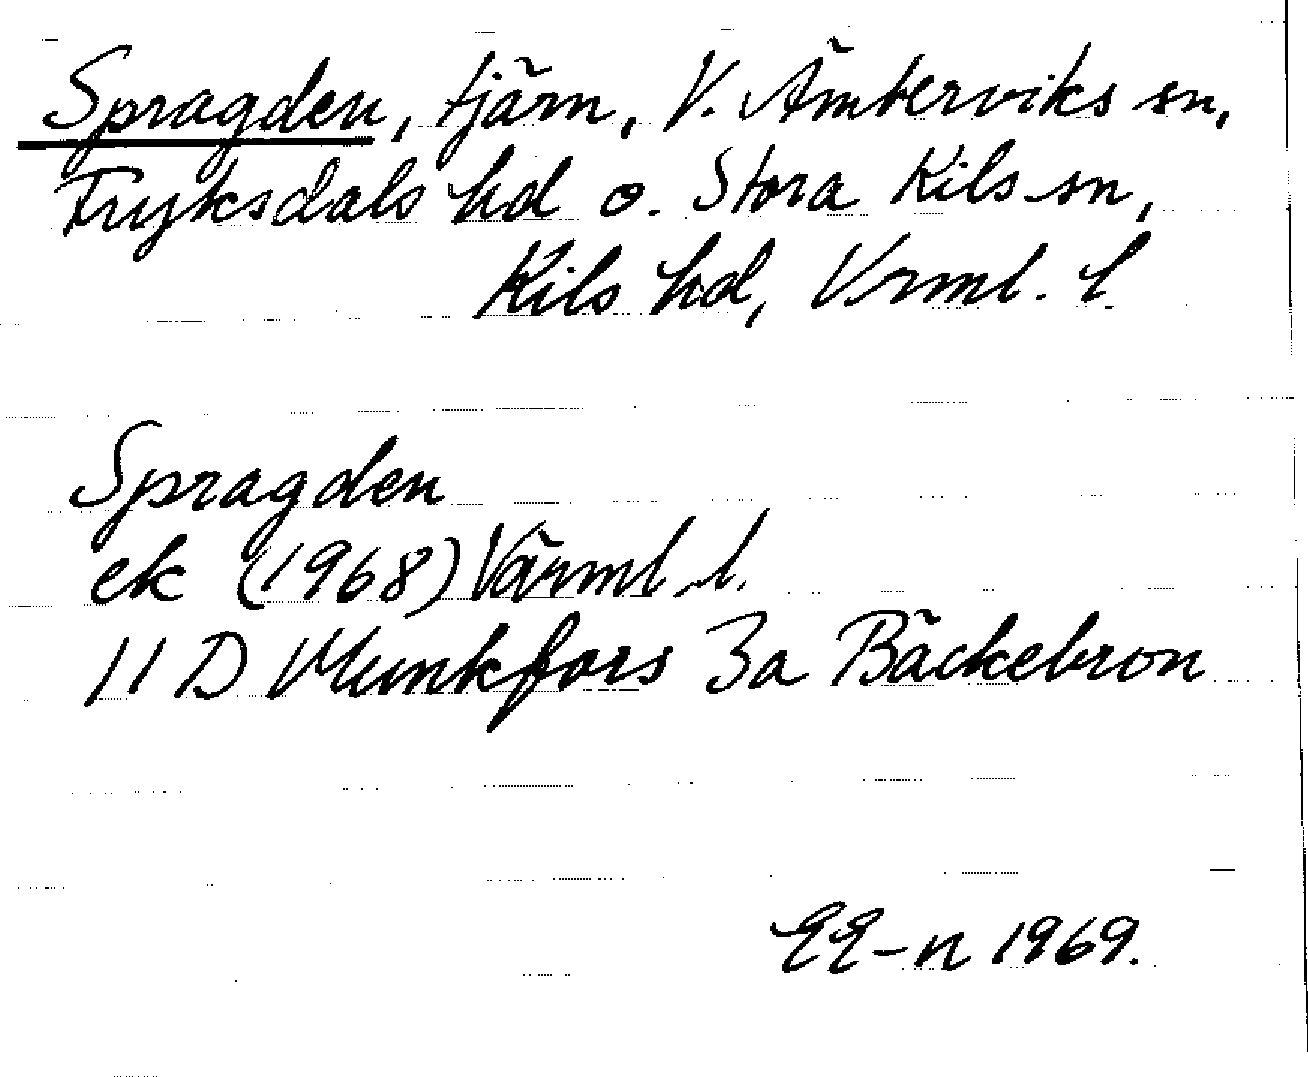 Spragden, tjärn, V. Ämterviks sn,
Fryksdals hd o. Stora Kils sn,
Kils hd, Vrml. l.
Spragden
ek (1968) Värml l.
11 D Munkfors 3a Bäckebron
EE-n 1969.